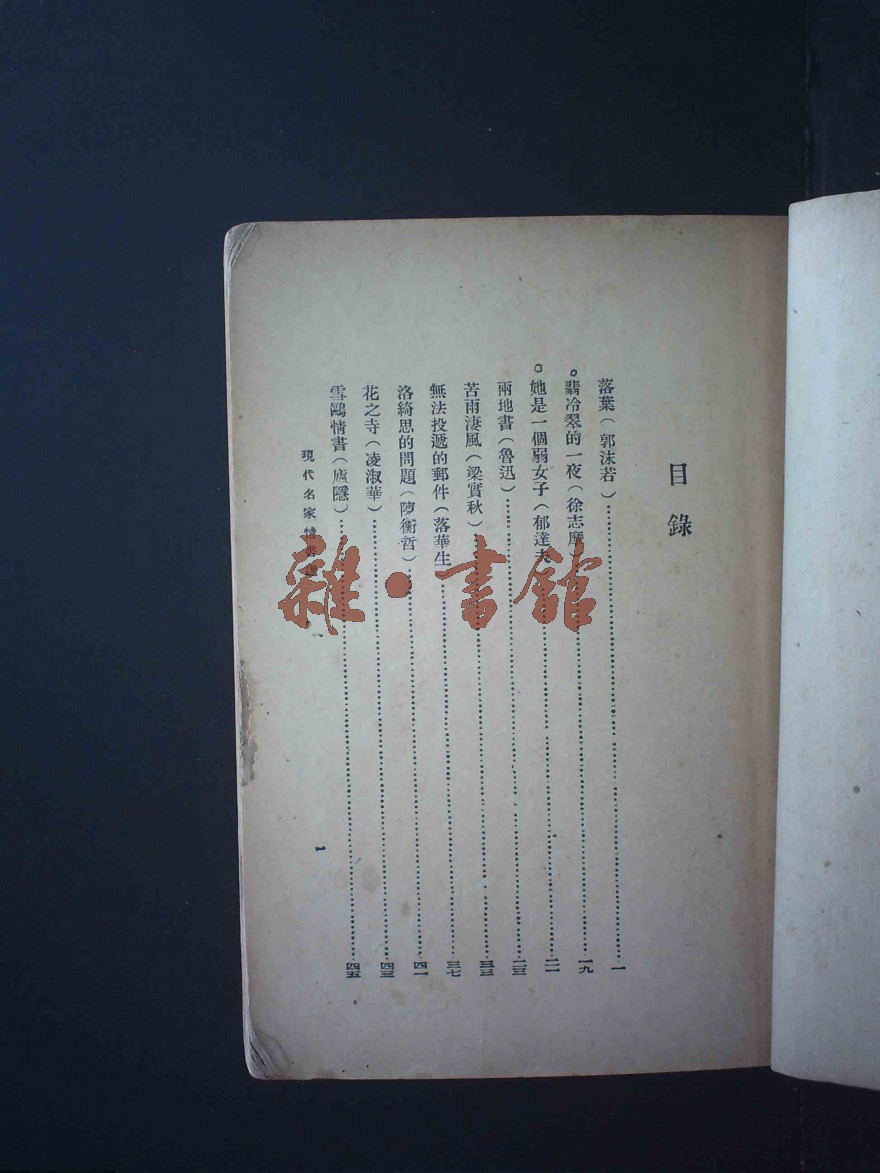 目錄
落葉(郭沫若)……一
翡冷翠的一夜(徐志摩)……一九
她是一個弱女子(郁達夫……二一
兩地書(魯迅)……二三
苦雨淒風(梁實秋)……三三
無法投遞的郵件(落華生……三七
洛綺思的問題(陳衡哲)……四一
花之寺(凌淑華)……四三
雪鷗情書(廬隱)……四五
現代名家情書
1
雜·書館